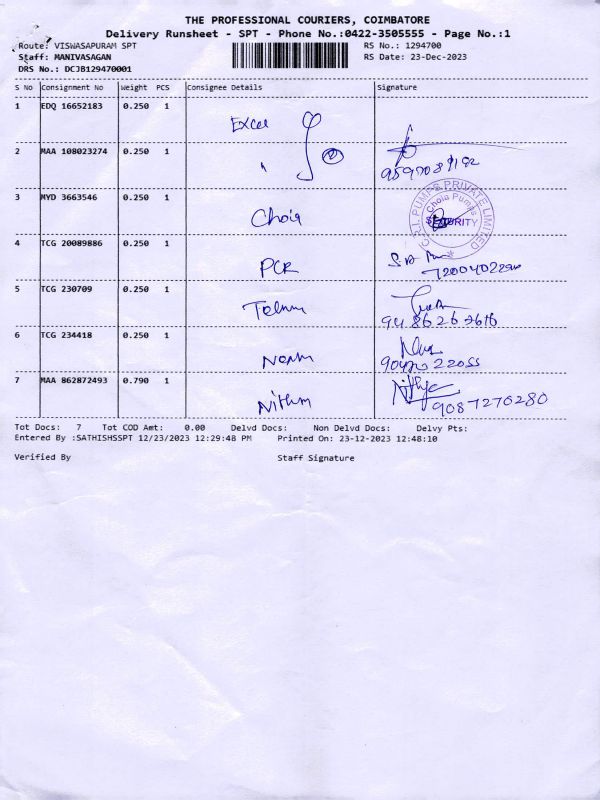 THE PROFESSIONAL COURIERS, COIMBATORE
Delivery Runsheet - SPT - Phone No.:0422-3505555 - Page No.:1
Route: VISWASAPURAM SPT RS No.: 1294700
Staff: MANIVASAGAN RS Date: 23-Dec-2023
DRS No.: DCJB129470001
S No Consignment No Weight PCS Consignee Details Signature
1 EDQ 16652183 0.250 1 Excel
2 MAA 108023274 0.250 1
3 MYD 3663546 0.250 1 Choia
C.R.I. PUMPS PRIVATE LIMITED
Choia Pumps
SECURITY
4 TCG 20089886 0.250 1 PCR
5 TCG 230709 0.250 1
6 TCG 234418 0.250 1
7 MAA 862872493 0.790 1 Nithya
9087276280
Tot Docs: 7 Tot COD Amt: 0.00 Delvd Docs: Non Delvd Docs: Delvy Pts:
Entered By :SATHISHSSPT 12/23/2023 12:29:48 PM Printed On: 23-12-2023 12:48:10
Verified By Staff Signature